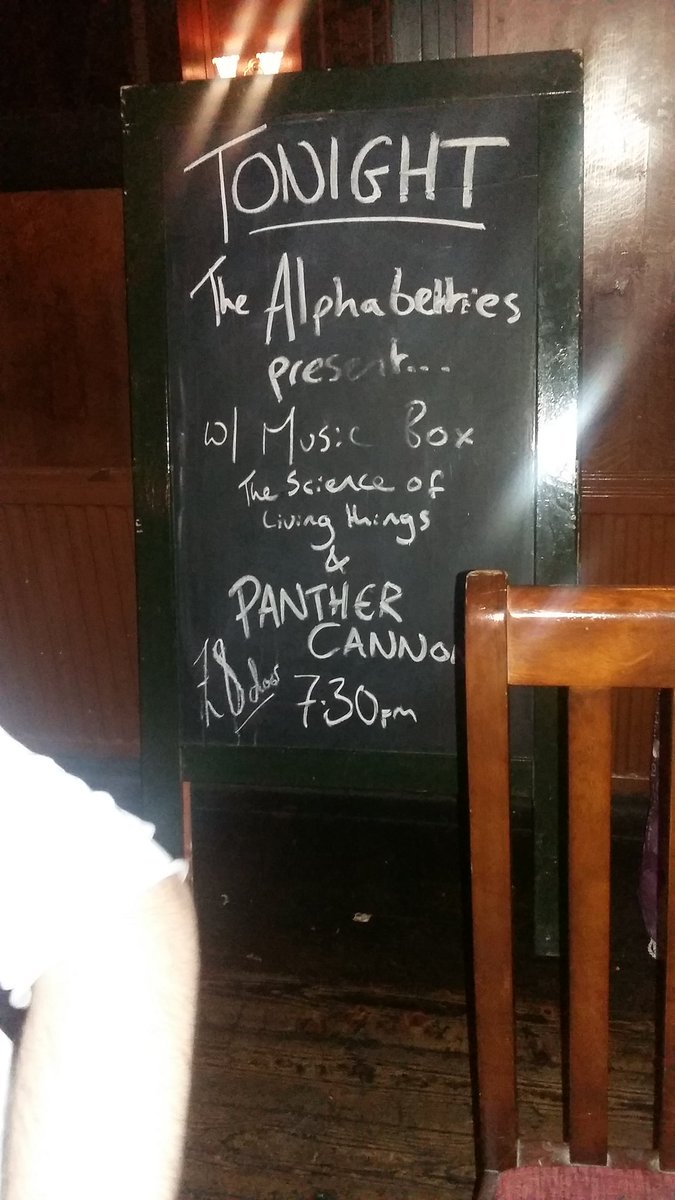 TONIGHT
The Alphabetties
present...
w/ Music Box
The Science of
Living things
&
PANTHER
CANNON
£8 door
7:30pm